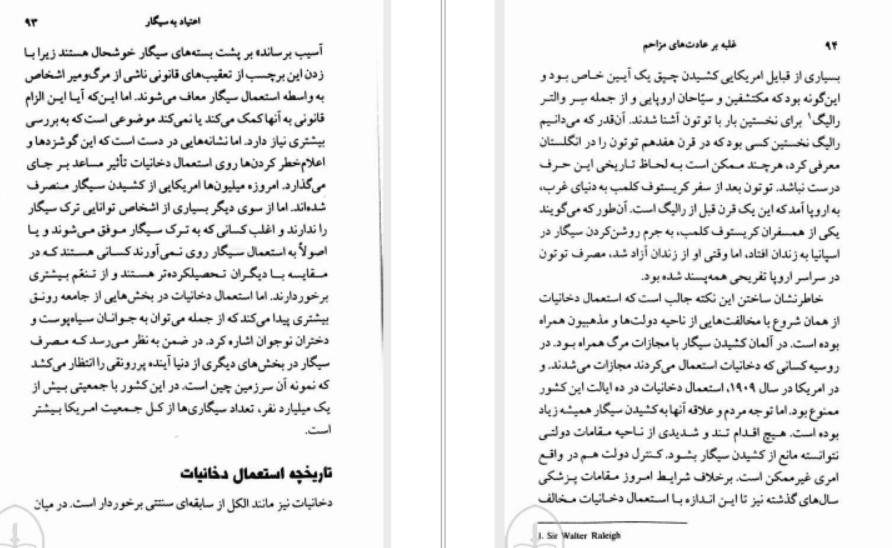 اعتیاد به سیگار ۹۳
آسیب برساند» بر پشت بسته‌های سیگار خوشحال هستند زیرا با
زدن این برچسب از تعقیب‌های قانونی ناشی از مرگ‌ومیر اشخاص
به واسطه استعمال سیگار معاف می‌شوند. اما این‌که آیا این الزام
قانونی به آنها کمک می‌کند یا نمی‌کند موضوعی است که به بررسی
بیشتری نیاز دارد. اما نشانه‌هایی در دست است که این گوشزدها و
اعلام‌خطر کردن‌ها روی استعمال دخانیات تأثیر مساعد بر جای
می‌گذارد. امروزه میلیون‌ها امریکایی از کشیدن سیگار منصرف
شده‌اند. اما از سوی دیگر بسیاری از اشخاص توانایی ترک سیگار
را ندارند و اغلب کسانی که به ترک سیگار موفق می‌شوند و یا
اصولاً به استعمال سیگار روی نمی‌آورند کسانی هستند که در
مقایسه با دیگران تحصیلکرده‌تر هستند و از تنعّم بیشتری
برخوردارند. اما استعمال دخانیات در بخش‌هایی از جامعه رونق
بیشتری پیدا می‌کند که از جمله می‌توان به جوانان سیاه‌پوست و
دختران نوجوان اشاره کرد. در ضمن به نظر می‌رسد که مصرف
سیگار در بخش‌های دیگری از دنیا آینده پررونقی را انتظار می‌کشد
که نمونه آن سرزمین چین است. در این کشور با جمعیتی بیش از
یک میلیارد نفر، تعداد سیگاری‌ها از کل جمعیت امریکا بیشتر
است.
تاریخچه استعمال دخانیات
دخانیات نیز مانند الکل از سابقه‌ای سنتی برخوردار است. در میان
۹۴ غلبه بر عادت‌های مزاحم
بسیاری از قبایل امریکایی کشیدن چپق یک آیین خاص بود و
این‌گونه بود که مکتشفین و سیّاحان اروپایی و از جمله سِر والتر
رالیگ۱ برای نخستین بار با توتون آشنا شدند. آن‌قدر که می‌دانیم
رالیگ نخستین کسی بود که در قرن هفدهم توتون را در انگلستان
معرفی کرد، هرچند ممکن است به لحاظ تاریخی این حرف
درست نباشد. توتون بعد از سفر کریستوف کلمب به دنیای غرب،
به اروپا آمد که این یک قرن قبل از رالیگ است. آن‌طور که می‌گویند
یکی از همسفران کریستوف کلمب، به جرم روشن‌کردن سیگار در
اسپانیا به زندان افتاد، اما وقتی او از زندان آزاد شد، مصرف توتون
در سراسر اروپا تفریحی همه‌پسند شده بود.
خاطرنشان ساختن این نکته جالب است که استعمال دخانیات
از همان شروع با مخالفت‌هایی از ناحیه دولت‌ها و مذهبیون همراه
بوده است. در آلمان کشیدن سیگار با مجازات مرگ همراه بود. در
روسیه کسانی که دخانیات استعمال می‌کردند مجازات می‌شدند. و
در امریکا در سال ۱۹۰۹، استعمال دخانیات در ده ایالت این کشور
ممنوع بود. اما توجه مردم و علاقه آنها به کشیدن سیگار همیشه زیاد
بوده است. هیچ اقدام تند و شدیدی از ناحیه مقامات دولتی
نتوانسته مانع از کشیدن سیگار بشود. کنترل دولت هم در واقع
امری غیرممکن است. برخلاف شرایط امروز مقامات پزشکی
سال‌های گذشته نیز تا این اندازه با استعمال دخانیات مخالف
1. Sir Walter Raleigh